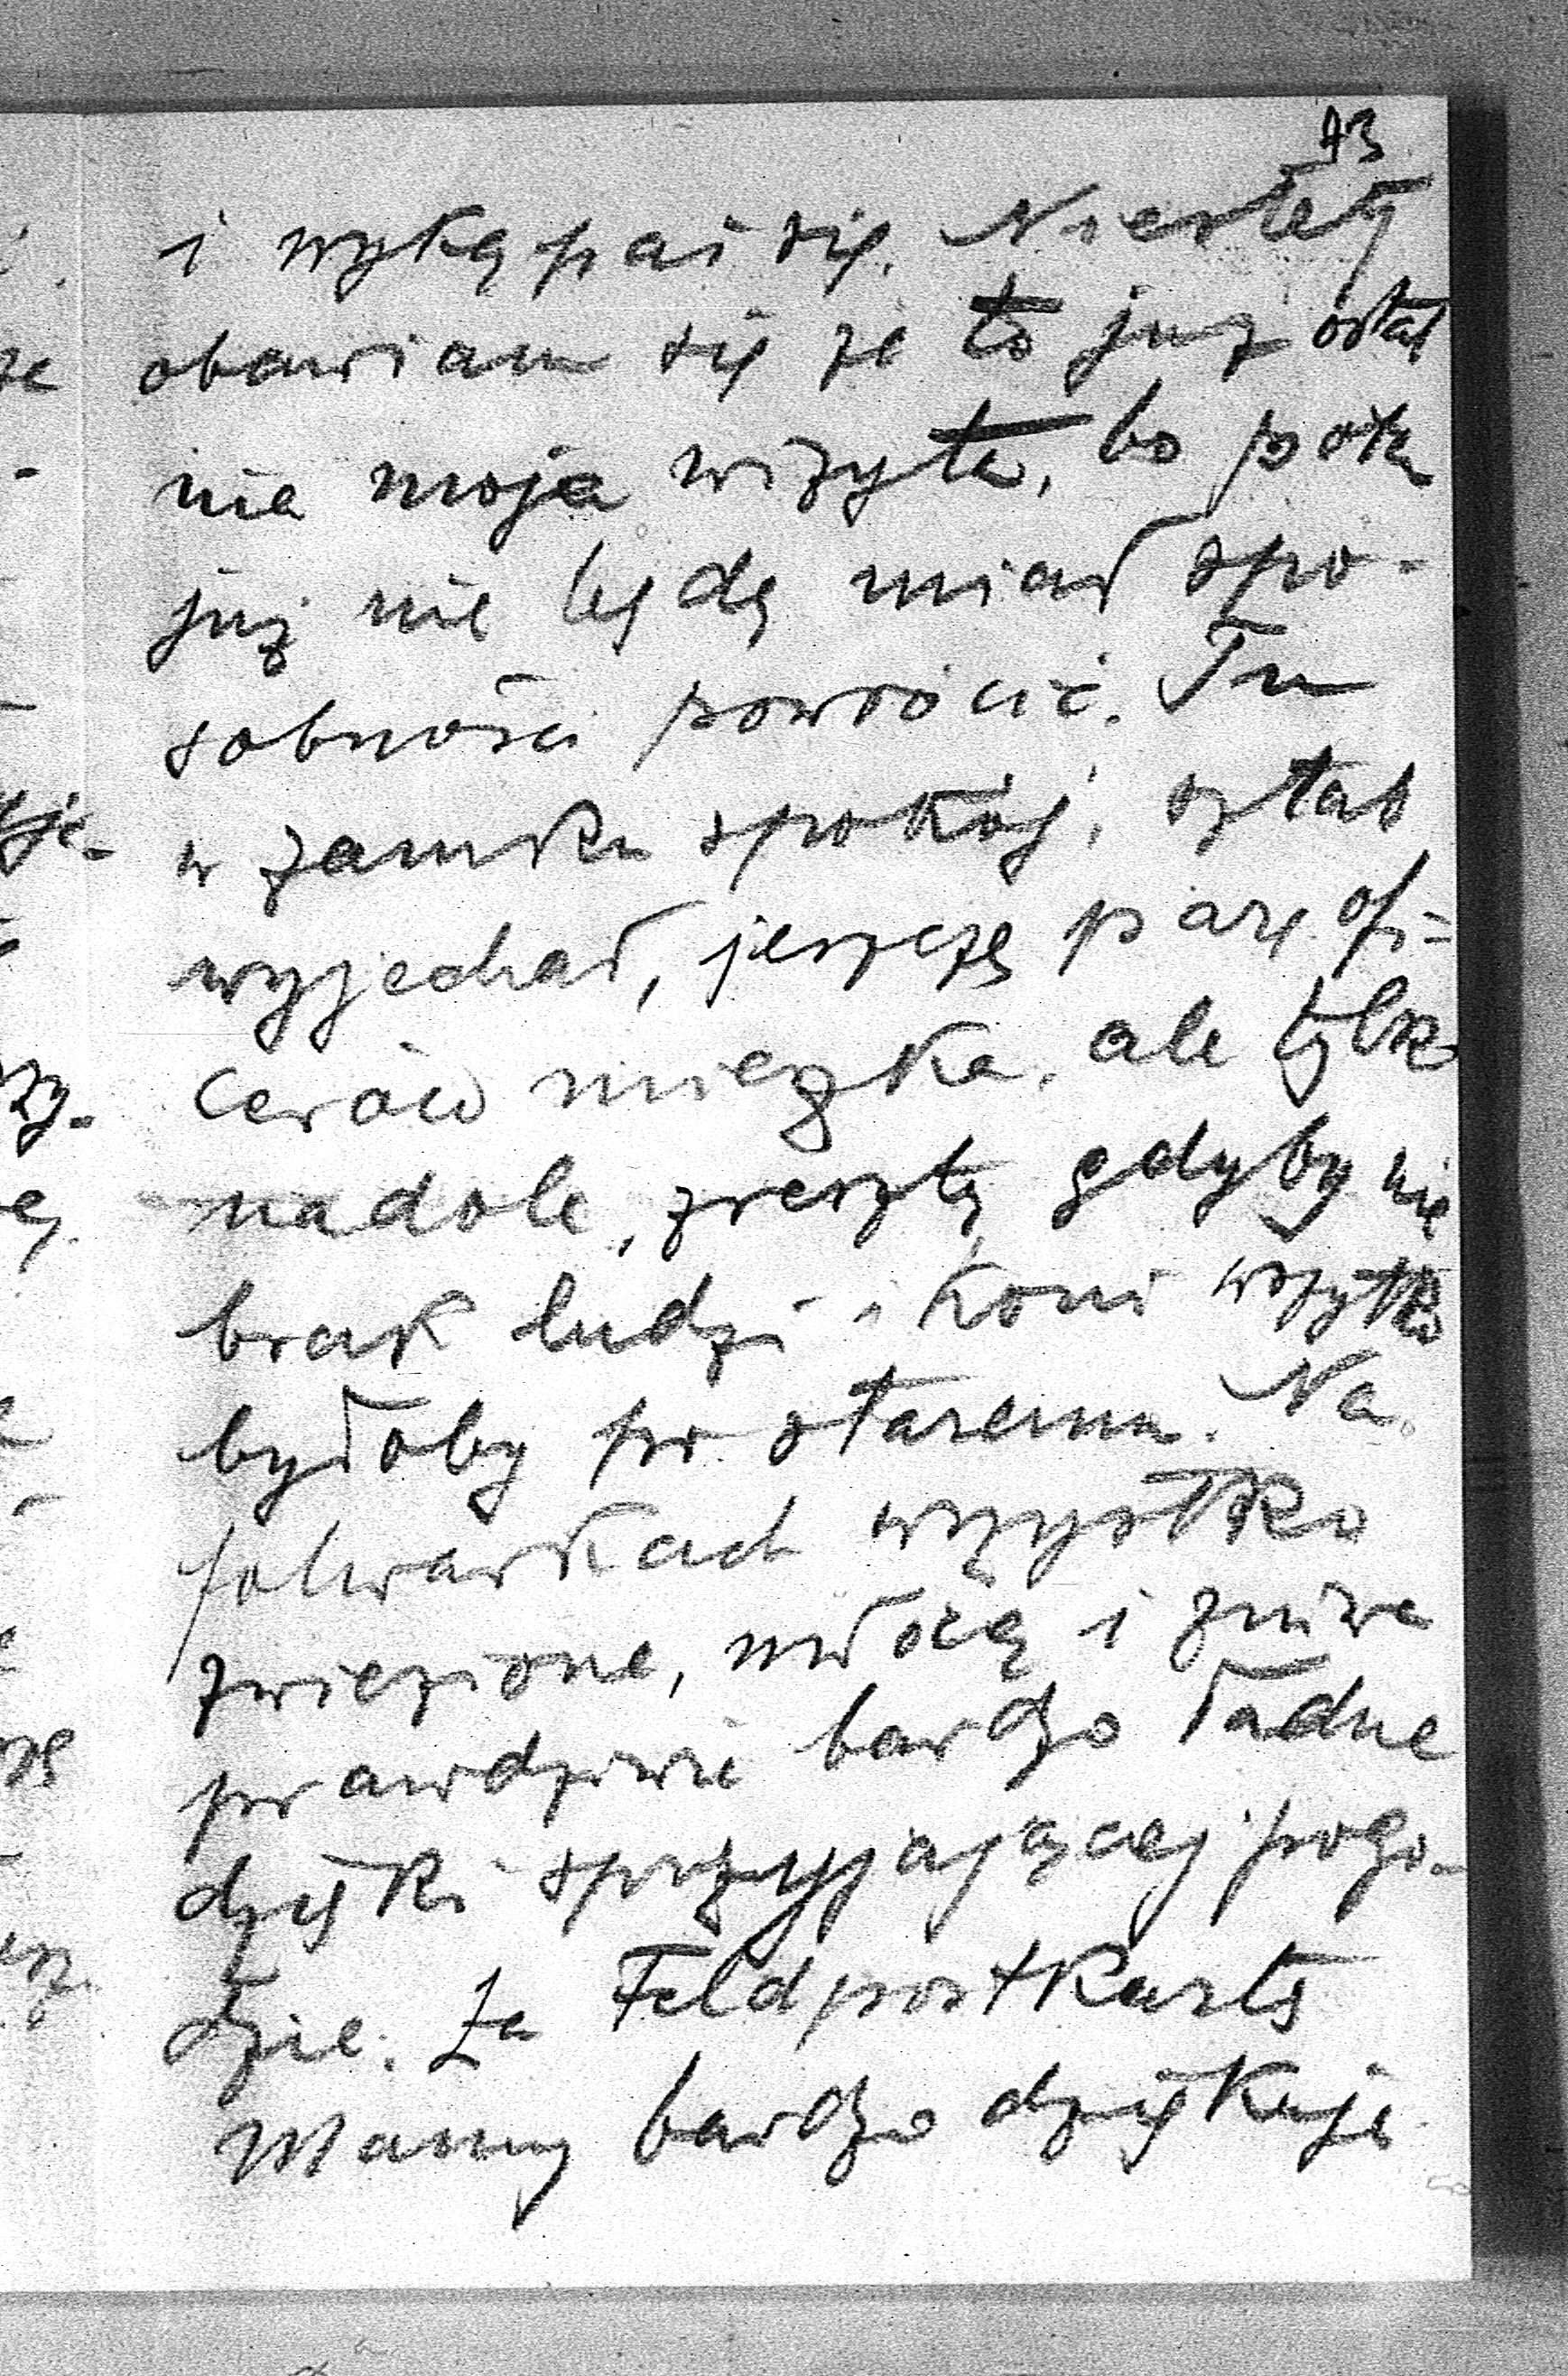 73
i wykąpać się. Niestety
obawiam się że to już ostat
nia moja wizyta, bo potem
już nie będę miał spo-
sobności powrócić. Tu
w zamku spokój, sztab
wyjechał, jeszcze parę ofi-
cerów mieszka, ale tylko
na dole, zresztą gdyby nie
brak ludzi i koni wszystko
byłoby po staremu. Na
folwarkach wszystko
zwiezione, młócą i żniwa
prawdziwie bardzo ładne
dzięki sprzyjającej pogo-
dzie. Za Feldpostkarty
Mamy bardzo dziękuję